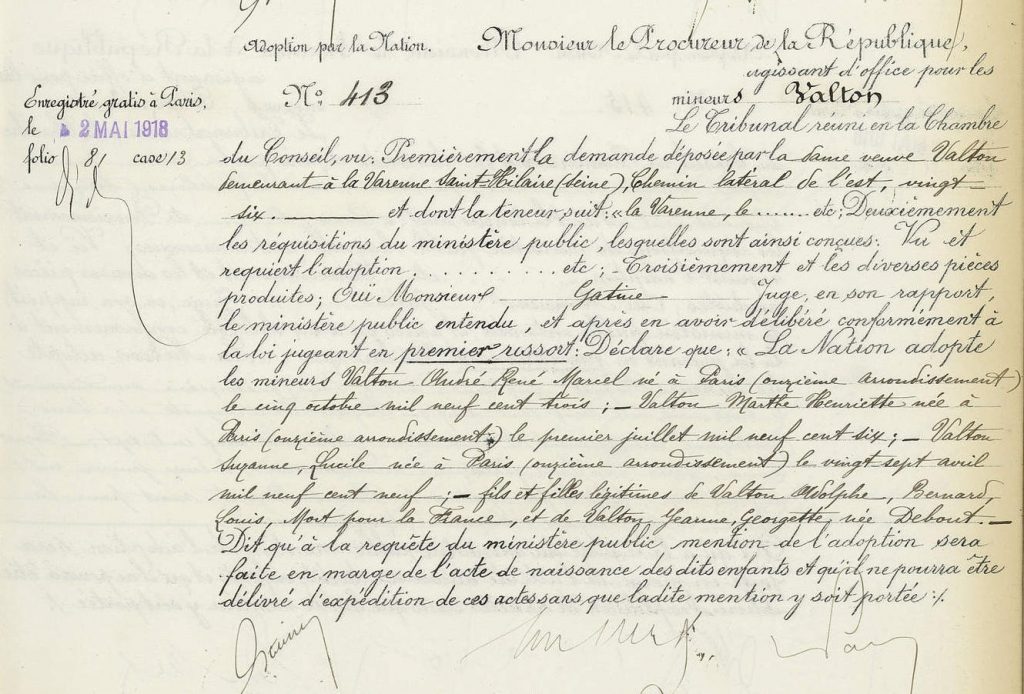 Adoption par la Nation.
Monsieur le Procureur de la République,
agissant d'office pour les
Enregistré gratis à Paris,
le 2 MAI 1918
folio 81 case 13
N° 413
mineurs Valton
Le Tribunal réuni en la Chambre
du Conseil, vu: Premièrement la demande déposée par la dame veuve Valton
demeurant à la Varenne Saint-Hilaire (Seine), Chemin latéral de l'est, vingt
six. et dont la teneur suit: «la Varenne, le ....... etc; Deuxièmement
les réquisitions du ministère public, lesquelles sont ainsi conçues: Vu et
requiert l'adoption . . . . . . . . . . etc; Troisièmement et les diverses pièces
produites; Ouï Monsieur Gatine Juge, en son rapport,
le ministère public entendu, et après en avoir délibéré conformément à
la loi jugeant en premier ressort: Déclare que: « La Nation adopte
les mineurs Valton André René Marcel né à Paris (onzième arrondissement)
le cinq octobre mil neuf cent trois; — Valton Marthe Henriette née à
Paris (onzième arrondissement) le premier juillet mil neuf cent six; — Valton
Suzanne, Lucile née à Paris (onzième arrondissement) le vingt sept avril
mil neuf cent neuf; — fils et filles légitimes de Valton Adolphe, Bernard,
Louis, Mort pour la France, et de Valton Jeanne, Georgette, née Debout. —
Dit qu'à la requête du ministère public mention de l'adoption sera
faite en marge de l'acte de naissance des dits enfants et qu'il ne pourra être
délivré d'expédition de ces actes sans que ladite mention y soit portée ./.